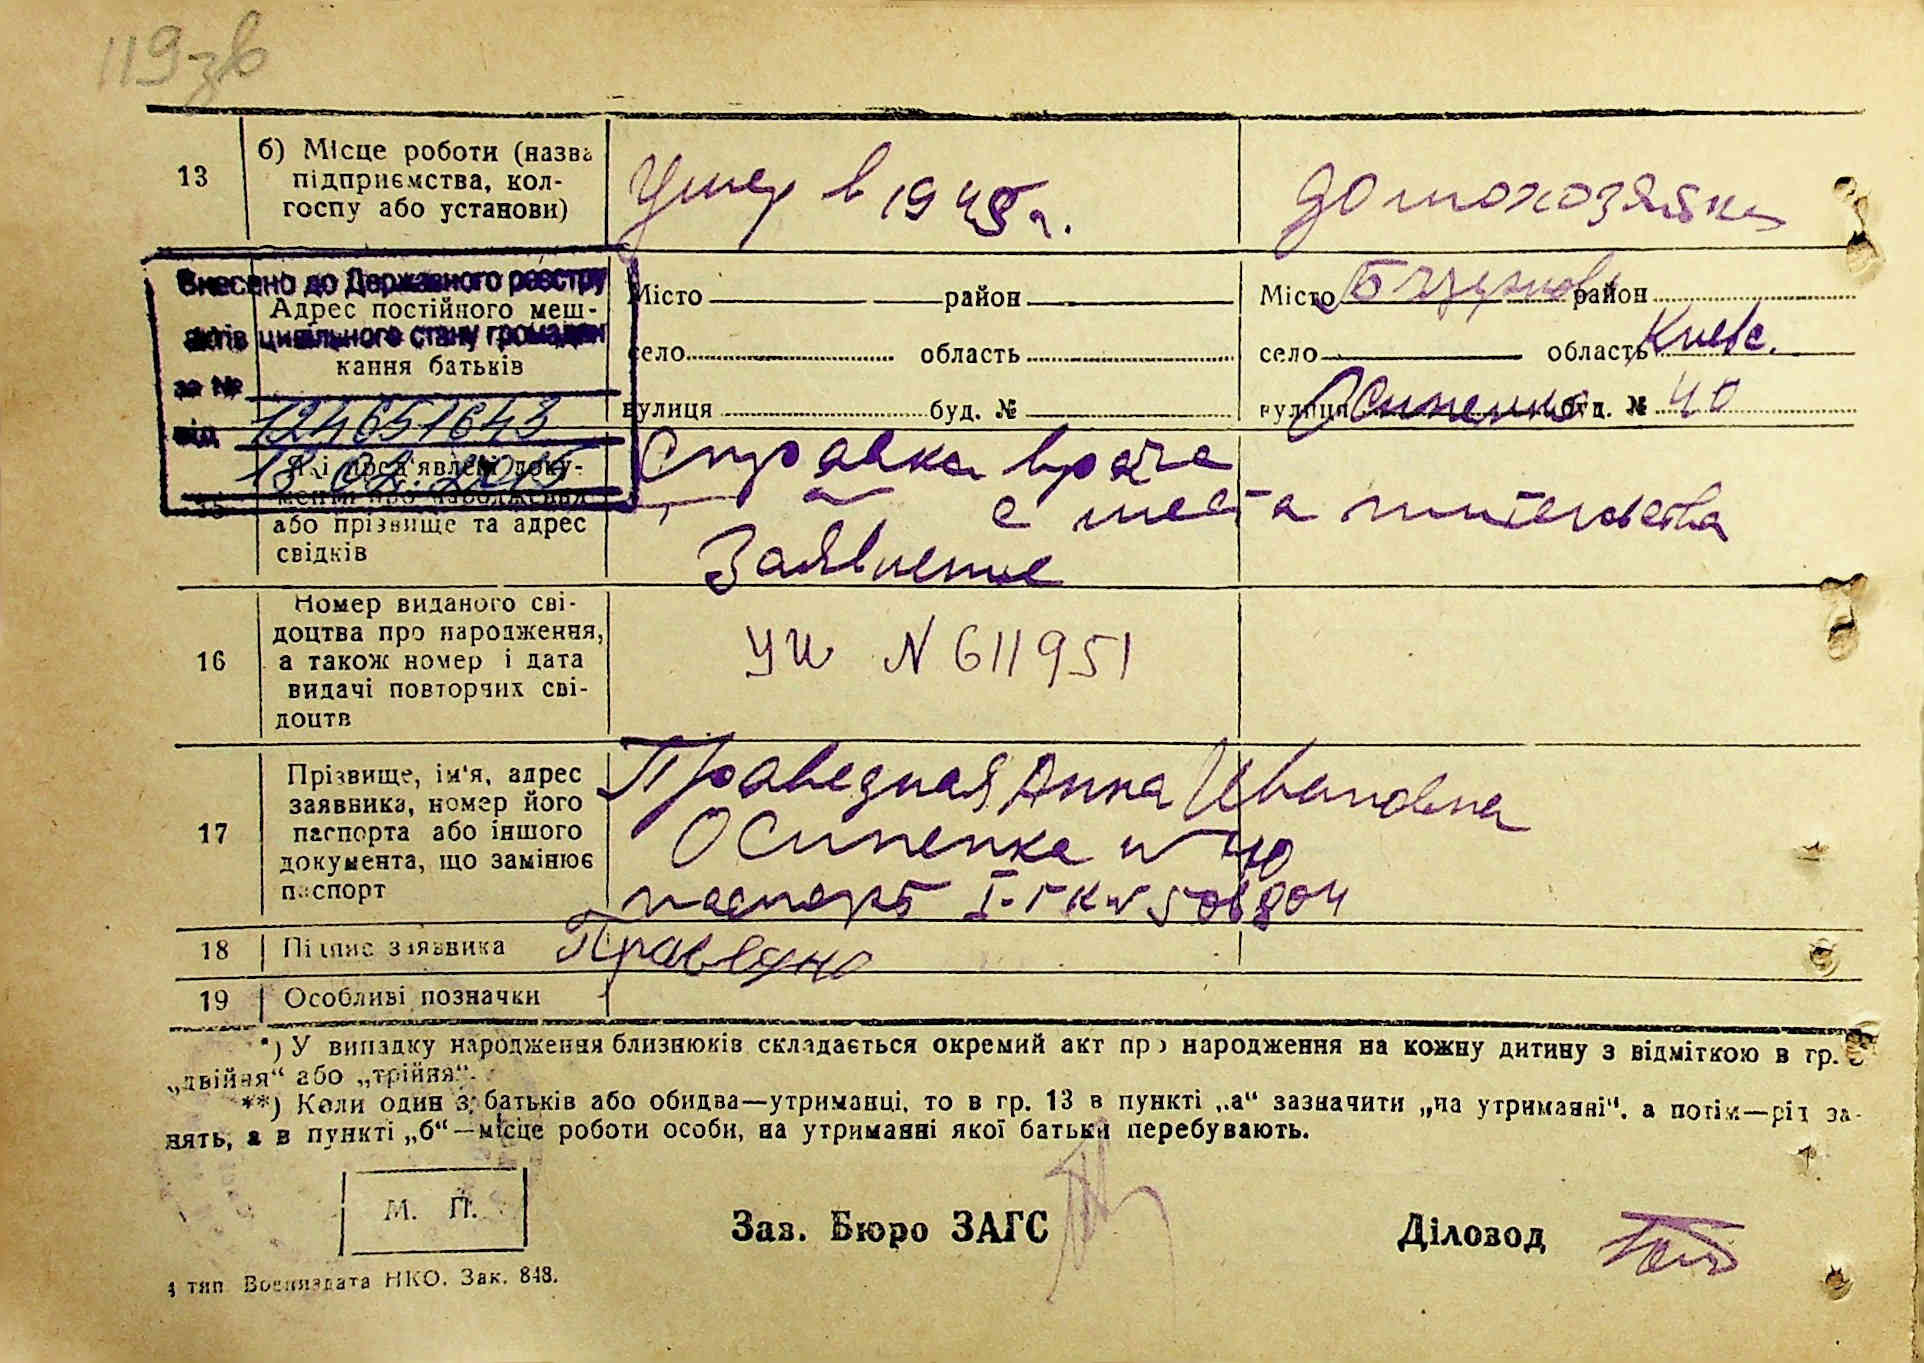 119зв
13
б) Місце роботи (назва підприємства, кол-
госпу або установи)
Умер в 1945 г.
домохозяйка
Внесено до Державного реєстру
актів цивільного стану громадян
за №
124651643
від
13.02.2015
Адрес постійного меш-
кання батьків
Місто район
село область
вулиця буд. №
Місто район
село область Киевс.
вулиця Осипенко буд. № 40
15
Які пред'явлені доку-
менти про народження
або прізвище та адрес
свідків
Справка врача
с места жительства
Заявление
16
Номер виданого сві-
доцтва про народження,
а також номер і дата
видачі повторних сві-
доцтв
УИ N 611951
17
Прізвище, ім'я, адрес
заявника, номер його
паспорта або іншого
документа, що замінює
паспорт
Праведная Анна Ивановна
Осипенка N 40
паспорт
18
Підпис заявника
19
Особливі позначки
*) У випадку народження близнюків складається окремий акт про народження на кожну дитину з відміткою в гр.
„двійня“ або „трійня“.
**) Коли один з батьків або обидва—утриманці, то в гр. 13 в пункті „а“ зазначити „на утриманні“, а потім—рід за-
нять, а в пункті „б“—місце роботи особи, на утриманні якої батьки перебувають.
М. П.
Зав. Бюро ЗАГС
Діловод
4 тип. Воениздата НКО. Зак. 848.